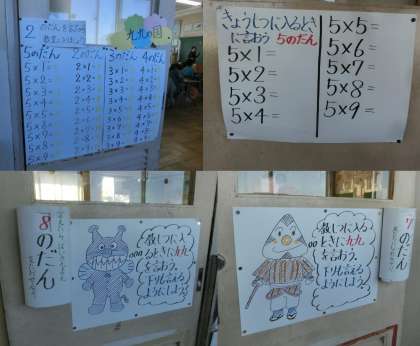 九九の国
5のだん 2のだん 3のだん 4のだん
5×1= 2×1= 3×1= 4×1=
5×2= 2×2= 3×2= 4×2=
5×3= 2×3= 3×3= 4×3=
5×4= 2×4= 3×4= 4×4=
5×5= 2×5= 3×5= 4×5=
5×6= 2×6= 3×6= 4×6=
5×7= 2×7= 3×7= 4×7=
5×8= 2×8= 3×8= 4×8=
5×9= 2×9= 3×9= 4×9=
きょうしつに入るとき
に言おう 5のだん
5×1=
5×2=
5×3=
5×4=
5×5=
5×6=
5×7=
5×8=
5×9=
8のだん
教しつに入
るときに九九
を言おう。
下りも言える
ようにしよう。
教しつに入る
ときに九九
を言おう。
下りも言える
ようにしよう。
7